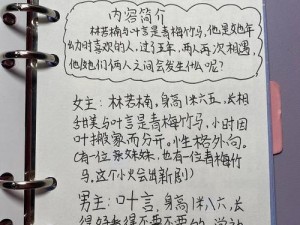 内容简介
林若楠与叶言是青梅竹马，他是她年
幼时喜欢的人，过了五年，两人再次相遇，
他她们俩人之间会发生什么呢？
女主：林若楠，身高1米六五，长相
甜美与叶言是青梅竹马，小时因
叶搬家而分开。性格外向。
（有一位亲妹妹，也有一位青梅竹
马，这个小火会出新剧）
男主：叶言，身高1米八六，长
得好看得不要不要的